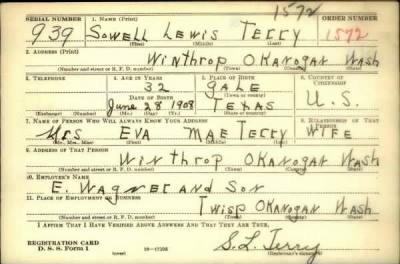 1572
SERIAL NUMBER 1. NAME (Print) ORDER NUMBER
939 Sowell Lewis Terry 1572
(First) (Middle) (Last)
2. ADDRESS (Print)
Winthrop Okanogan Wash
(Number and street or R. F. D. number) (Town) (County) (State)
3. TELEPHONE 4. AGE IN YEARS 5. PLACE OF BIRTH 6. COUNTRY OF CITIZENSHIP
32 Gale
DATE OF BIRTH (Town or county)
June 28 1908 Texas U.S.
(Exchange) (Number) (Mo.) (Day) (Yr.) (State or country)
7. NAME OF PERSON WHO WILL ALWAYS KNOW YOUR ADDRESS 8. RELATIONSHIP OF THAT PERSON
Mrs Eva Mae Terry Wife
(Mr., Mrs., Miss) (First) (Middle) (Last)
9. ADDRESS OF THAT PERSON
Winthrop Okanogan Wash
(Number and street or R. F. D. number) (Town) (County) (State)
10. EMPLOYER'S NAME
E. Wagner and Son
11. PLACE OF EMPLOYMENT OR BUSINESS
Twisp Okanogan Wash
(Number and street or R. F. D. number) (Town) (County) (State)
I AFFIRM THAT I HAVE VERIFIED ABOVE ANSWERS AND THAT THEY ARE TRUE.
REGISTRATION CARD
D. S. S. Form 1 16—17105 S.L. Terry
(Registrant's signature)